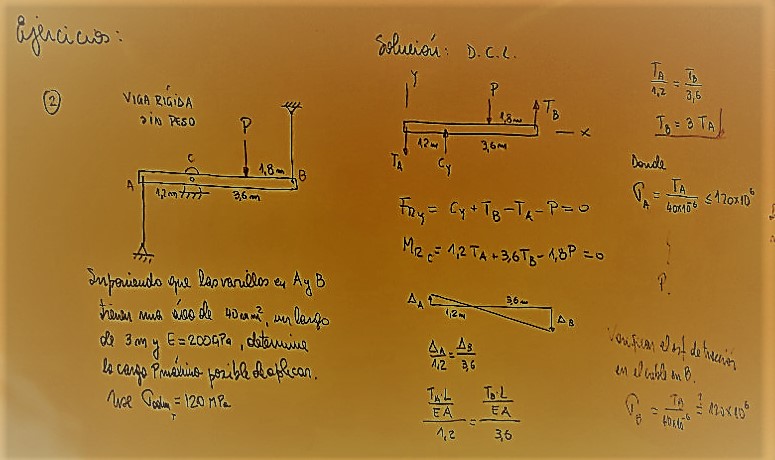 Ejercicios:
2
VIGA RÍGIDA
SIN PESO
P
C
1,8m
A
B
1,2m
3,6m
Suponiendo que las varillas en A y B
tienen una área de 40mm², un largo
de 3m y E=200GPa, determine
la carga P máxima posible de aplicar.
Use σadm_T = 120 MPa
Solución: D.C.L.
Y
P
T_B
1,8m
x
1,2m
3,6m
T_A
C_y
F_Ry = C_y + T_B - T_A - P = 0
M_Rc = 1,2T_A + 3,6T_B - 1,8P = 0
Δ_A
3,6m
1,2m
Δ_B
Δ_A/1,2 = Δ_B/3,6
(T_A·L/EA)/1,2 = (T_B·L/EA)/3,6
T_A/1,2 = T_B/3,6
T_B = 3 T_A
Donde
σ_A = T_A/40x10⁻⁶ ≤ 120x10⁶
P.
Verificar el esf de tracción
en el cable en B.